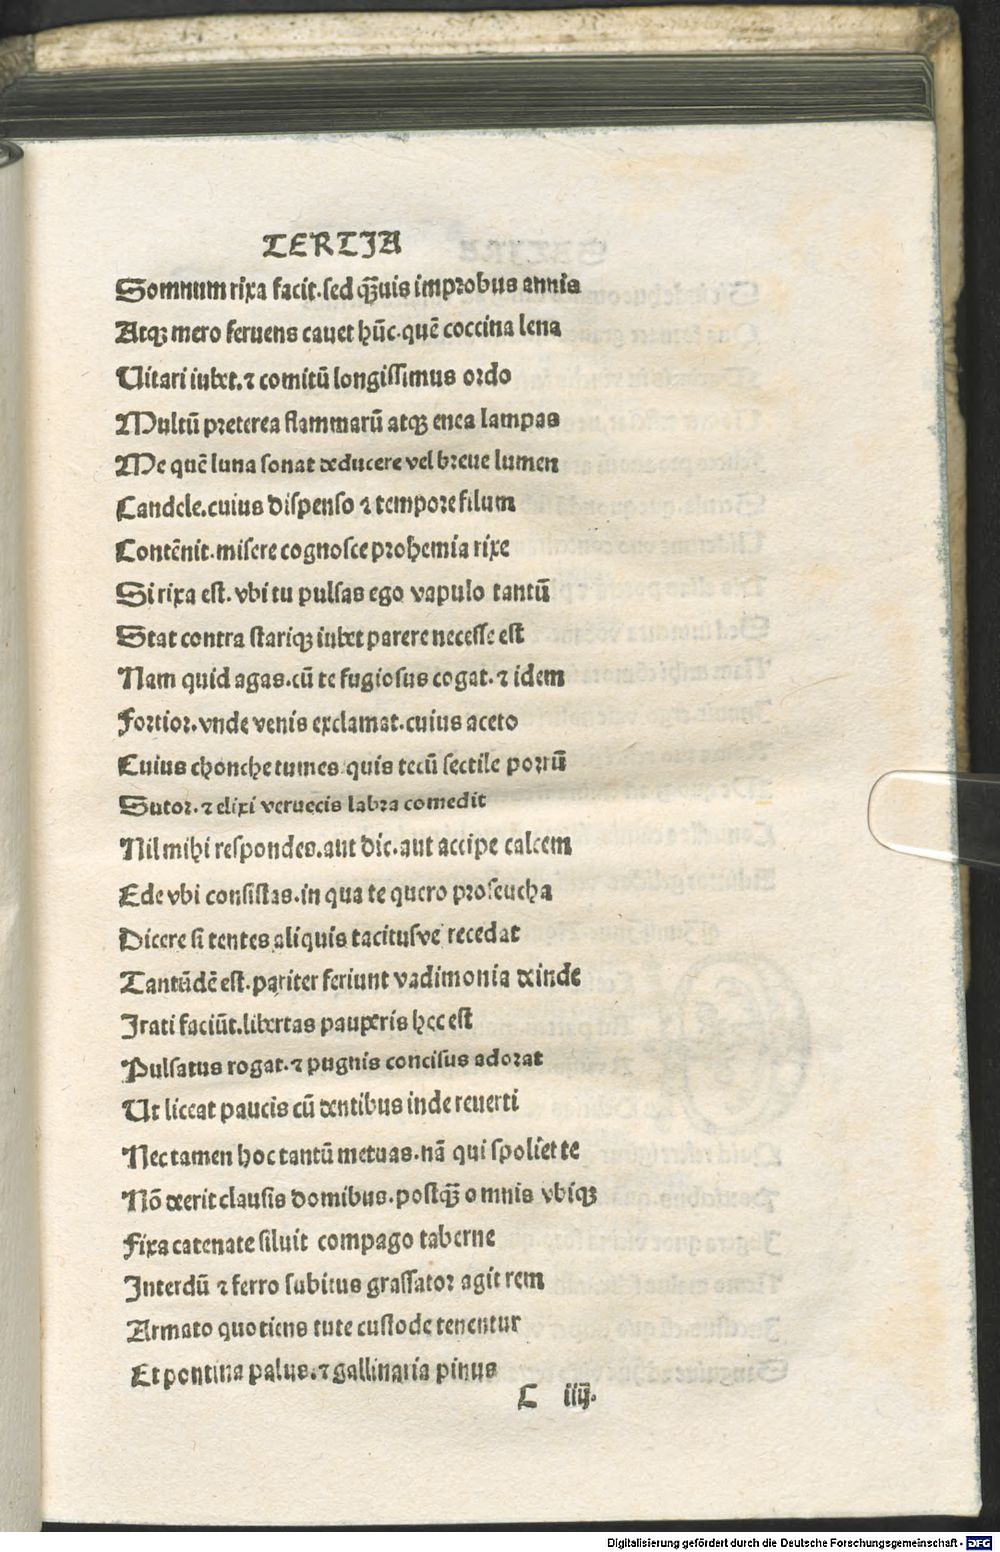 TERTIA
Somnum rixa facit. sed qͣuis improbus annis
Atqꝫ mero feruens cauet hūc. quē coccina lena
Uitari iubet. ⁊ comitū longissimus ordo
Multū preterea flammarū atqꝫ enea lampas
Me quē luna sonat deducere vel breue lumen
Candele. cuius dispenso ⁊ tempore filum
Contēnit. misere cognosce prohemia rixe
Si rixa est. vbi tu pulsas ego vapulo tantū
Stat contra stariqꝫ iubet parere necesse est
Nam quid agas. cū te fugiosus cogat. ⁊ idem
Fortior. vnde venis exclamat. cuius aceto
Cuius chonche tumes quis tecū sectile porrū
Sutor. ⁊ elixi veruecis labra comedit
Nil mihi respondes. aut dic. aut accipe calcem
Ede vbi consistas. in qua te quero proseucha
Dicere si tentes aliquis tacitusve recedat
Tantūdē est. pariter feriunt vadimonia deinde
Irati faciūt. libertas pauperis hec est
Pulsatus rogat. ⁊ pugnis concisus adorat
Ut liceat paucis cū dentibus inde reuerti
Nec tamen hoc tantū metuas. nā qui spoliet te
Nō deerit clausis domibus. postqͣ omnis vbiqꝫ
Fixa catenate siluit compago taberne
Interdū ⁊ ferro subitus grassator agit rem
Armato quotiens tute custode tenentur
Et pontina palus. ⁊ gallinaria pinus
C iiij.
Digitalisierung gefördert durch die Deutsche Forschungsgemeinschaft - DFG